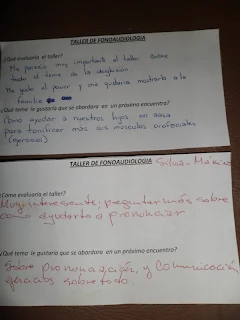 TALLER DE FONOAUDIOLOGIA
¿Cómo evaluaría el taller?
Me pareció muy importante el taller. Sobre
todo el tema de la deglusión.
Me gustó el power y me gustaría mostrarlo a la
familia
¿Qué tema le gustaría que se abordara en un próximo encuentro?
Cómo ayudar a nuestros hijos en casa
para tonificar más sus músculos orofaciales
(ejercicios)
TALLER DE FONOAUDIOLOGIA
Silvia - Máximo
¿Cómo evaluaría el taller?
Muy interesente; preguntar más sobre
como ayudarlo a pronunciar
¿Qué tema le gustaría que se abordara en un próximo encuentro?
Sobre pronunciación, y comunicación
gracias sobre todo.